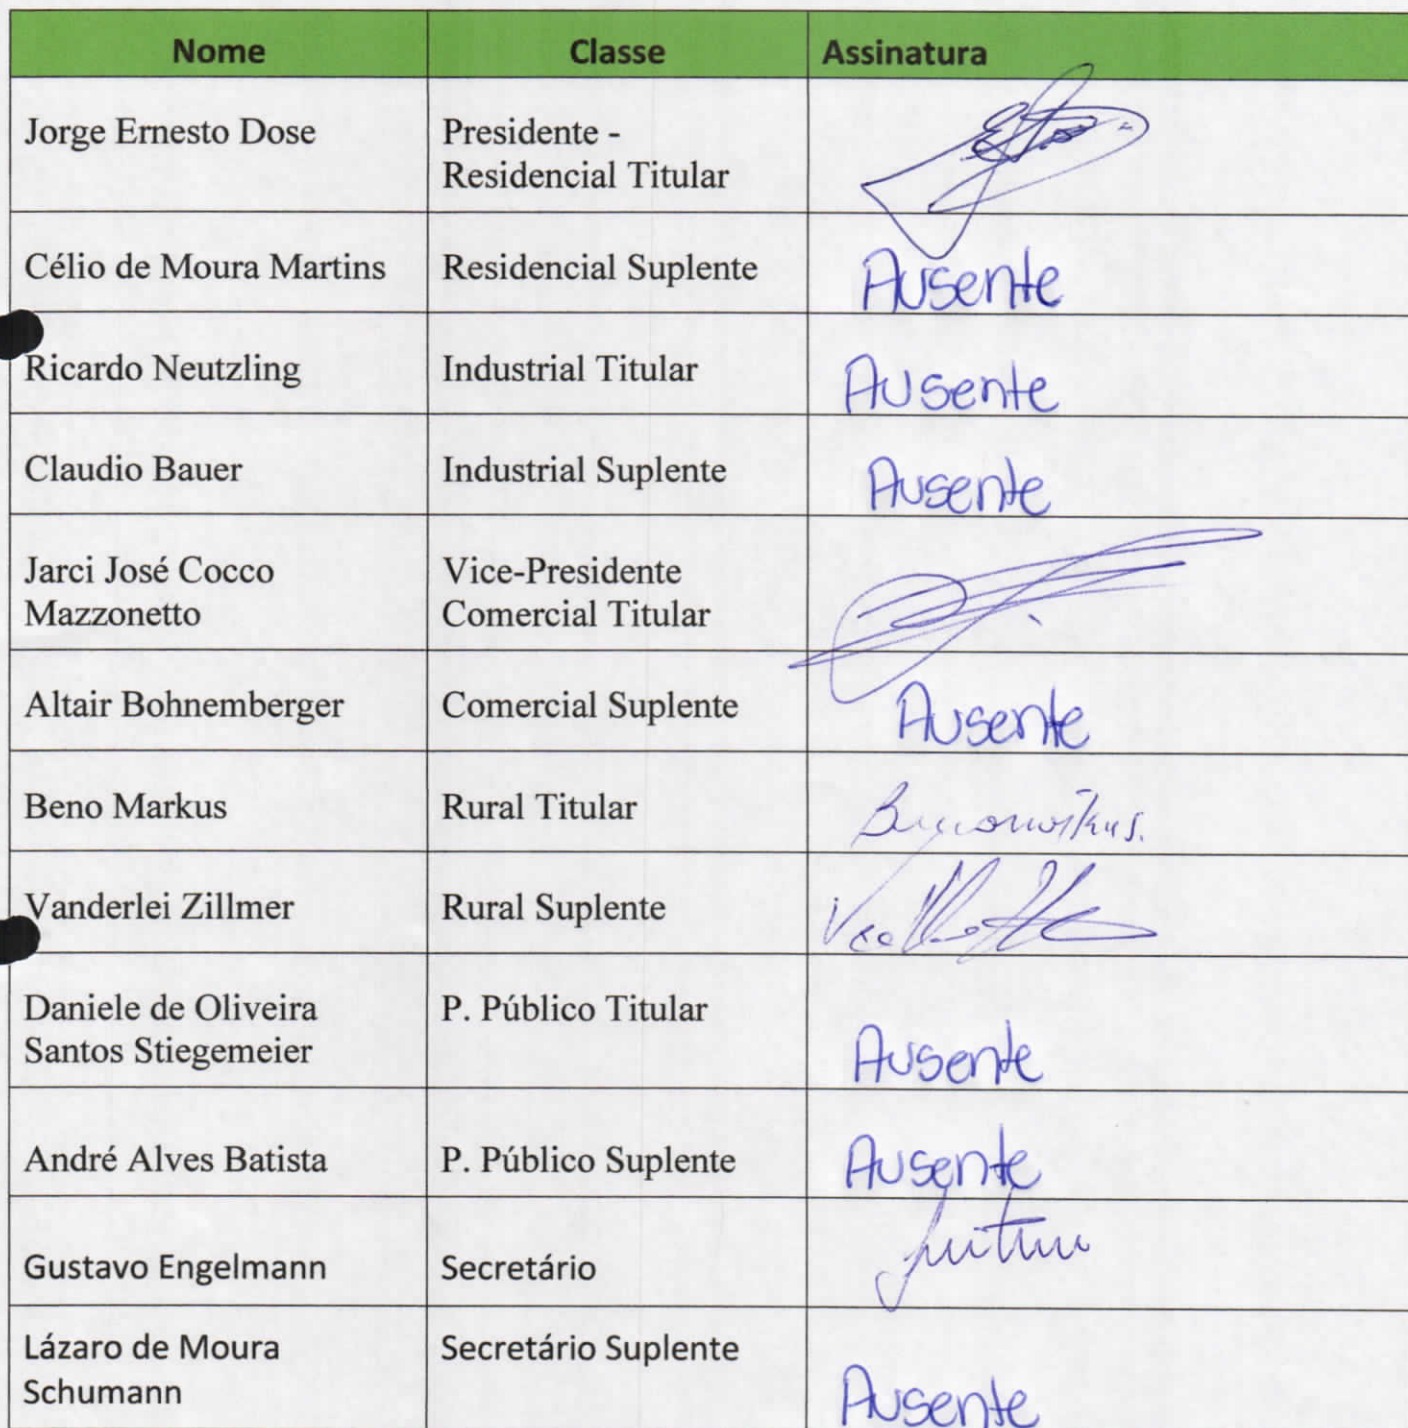 Nome Classe Assinatura
Jorge Ernesto Dose Presidente -
Residencial Titular
Célio de Moura Martins Residencial Suplente Ausente
Ricardo Neutzling Industrial Titular Ausente
Claudio Bauer Industrial Suplente Ausente
Jarci José Cocco Vice-Presidente
Mazzonetto Comercial Titular
Altair Bohnemberger Comercial Suplente Ausente
Beno Markus Rural Titular
Vanderlei Zillmer Rural Suplente
Daniele de Oliveira P. Público Titular
Santos Stiegemeier Ausente
André Alves Batista P. Público Suplente Ausente
Gustavo Engelmann Secretário
Lázaro de Moura Secretário Suplente
Schumann Ausente